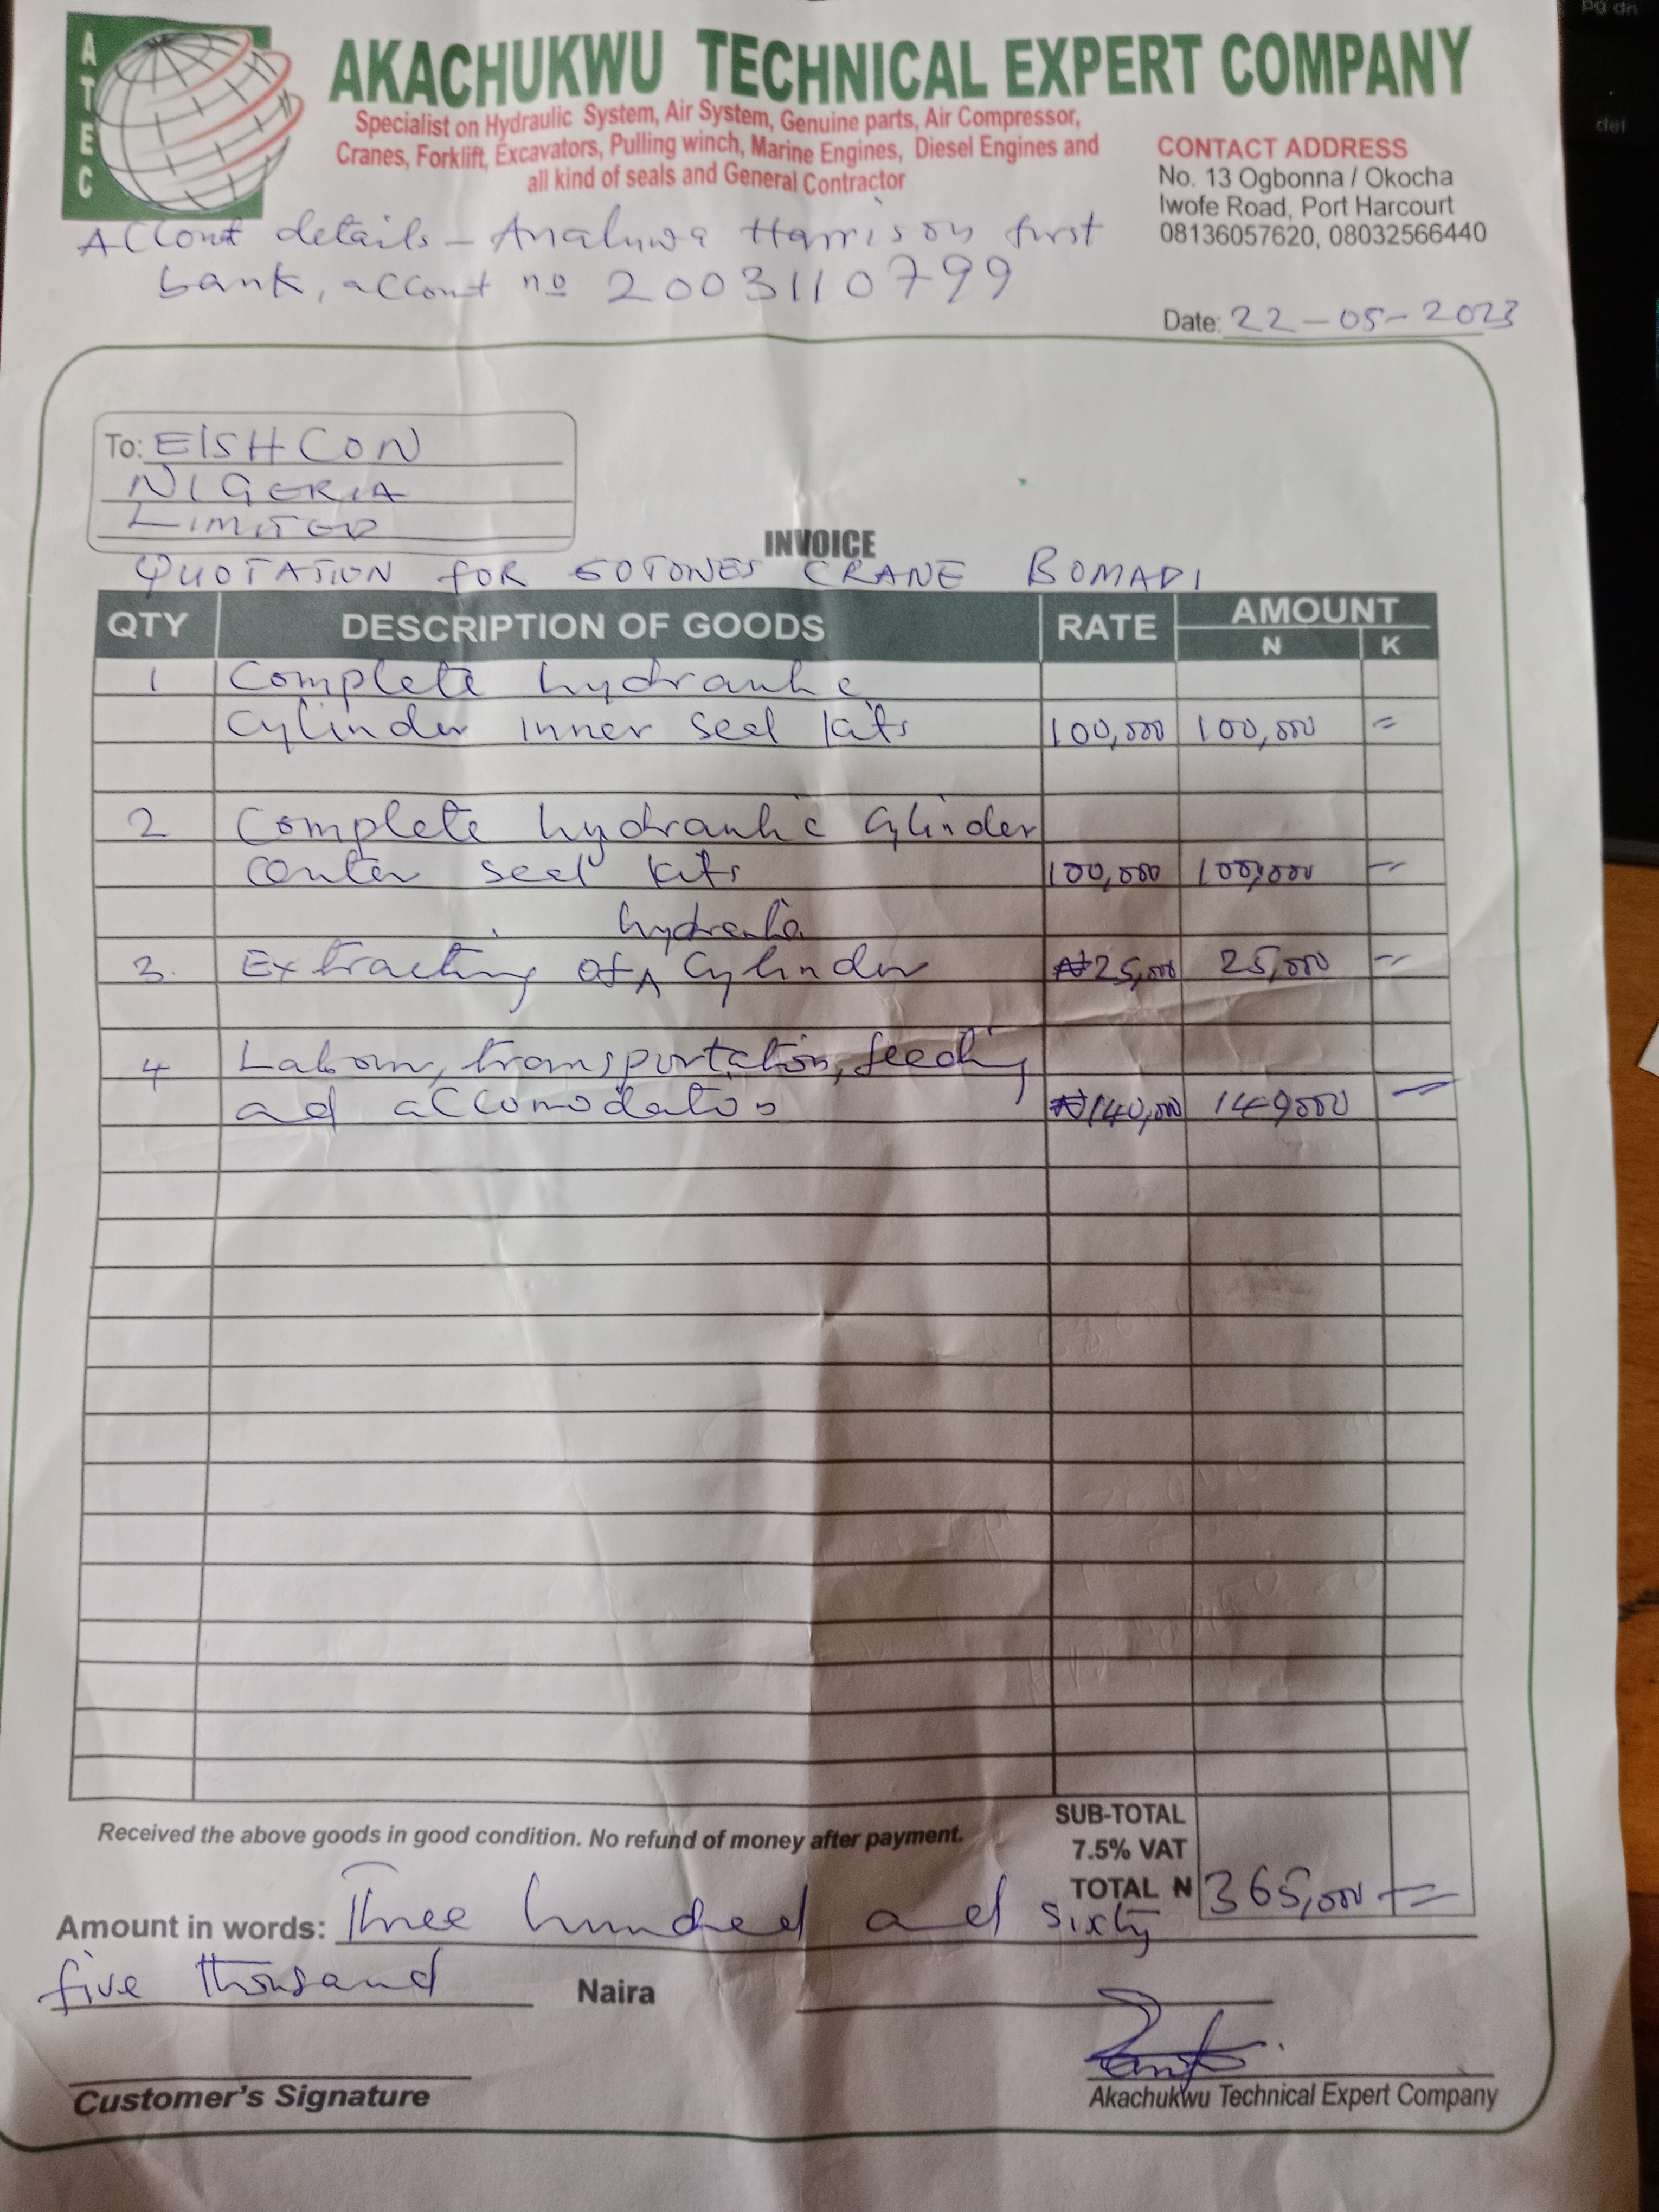 ATEC
AKACHUKWU TECHNICAL EXPERT COMPANY
Specialist on Hydraulic System, Air System, Genuine parts, Air Compressor,
Cranes, Forklift, Excavators, Pulling winch, Marine Engines, Diesel Engines and
all kind of seals and General Contractor
CONTACT ADDRESS
No. 13 Ogbonna / Okocha
Iwofe Road, Port Harcourt
08136057620, 08032566440
Account details - Harrison first
bank, account no 2003110799
Date: 22-05-2023
To: EISHCON
NIGERIA
LIMITED
INVOICE
QUOTATION FOR 50TONES CRANE BOMADI
QTY DESCRIPTION OF GOODS RATE AMOUNT
N K
1 Complete hydraulic
cylinder inner seal kits 100,000 100,000 =
2 Complete hydraulic cylinder
center seal kits 100,000 100,000 =
hydraulic
3. Extracting of ^ cylinder ₦25,000 25,000 =
4 Labour, transportation, feeding
ad accomodation ₦140,000 140,000 =
Received the above goods in good condition. No refund of money after payment.
SUB-TOTAL
7.5% VAT
TOTAL N 365,000 =
Amount in words: Three hundred ad sixty
five thousand Naira
Customer's Signature
Akachukwu Technical Expert Company
pg dn
del